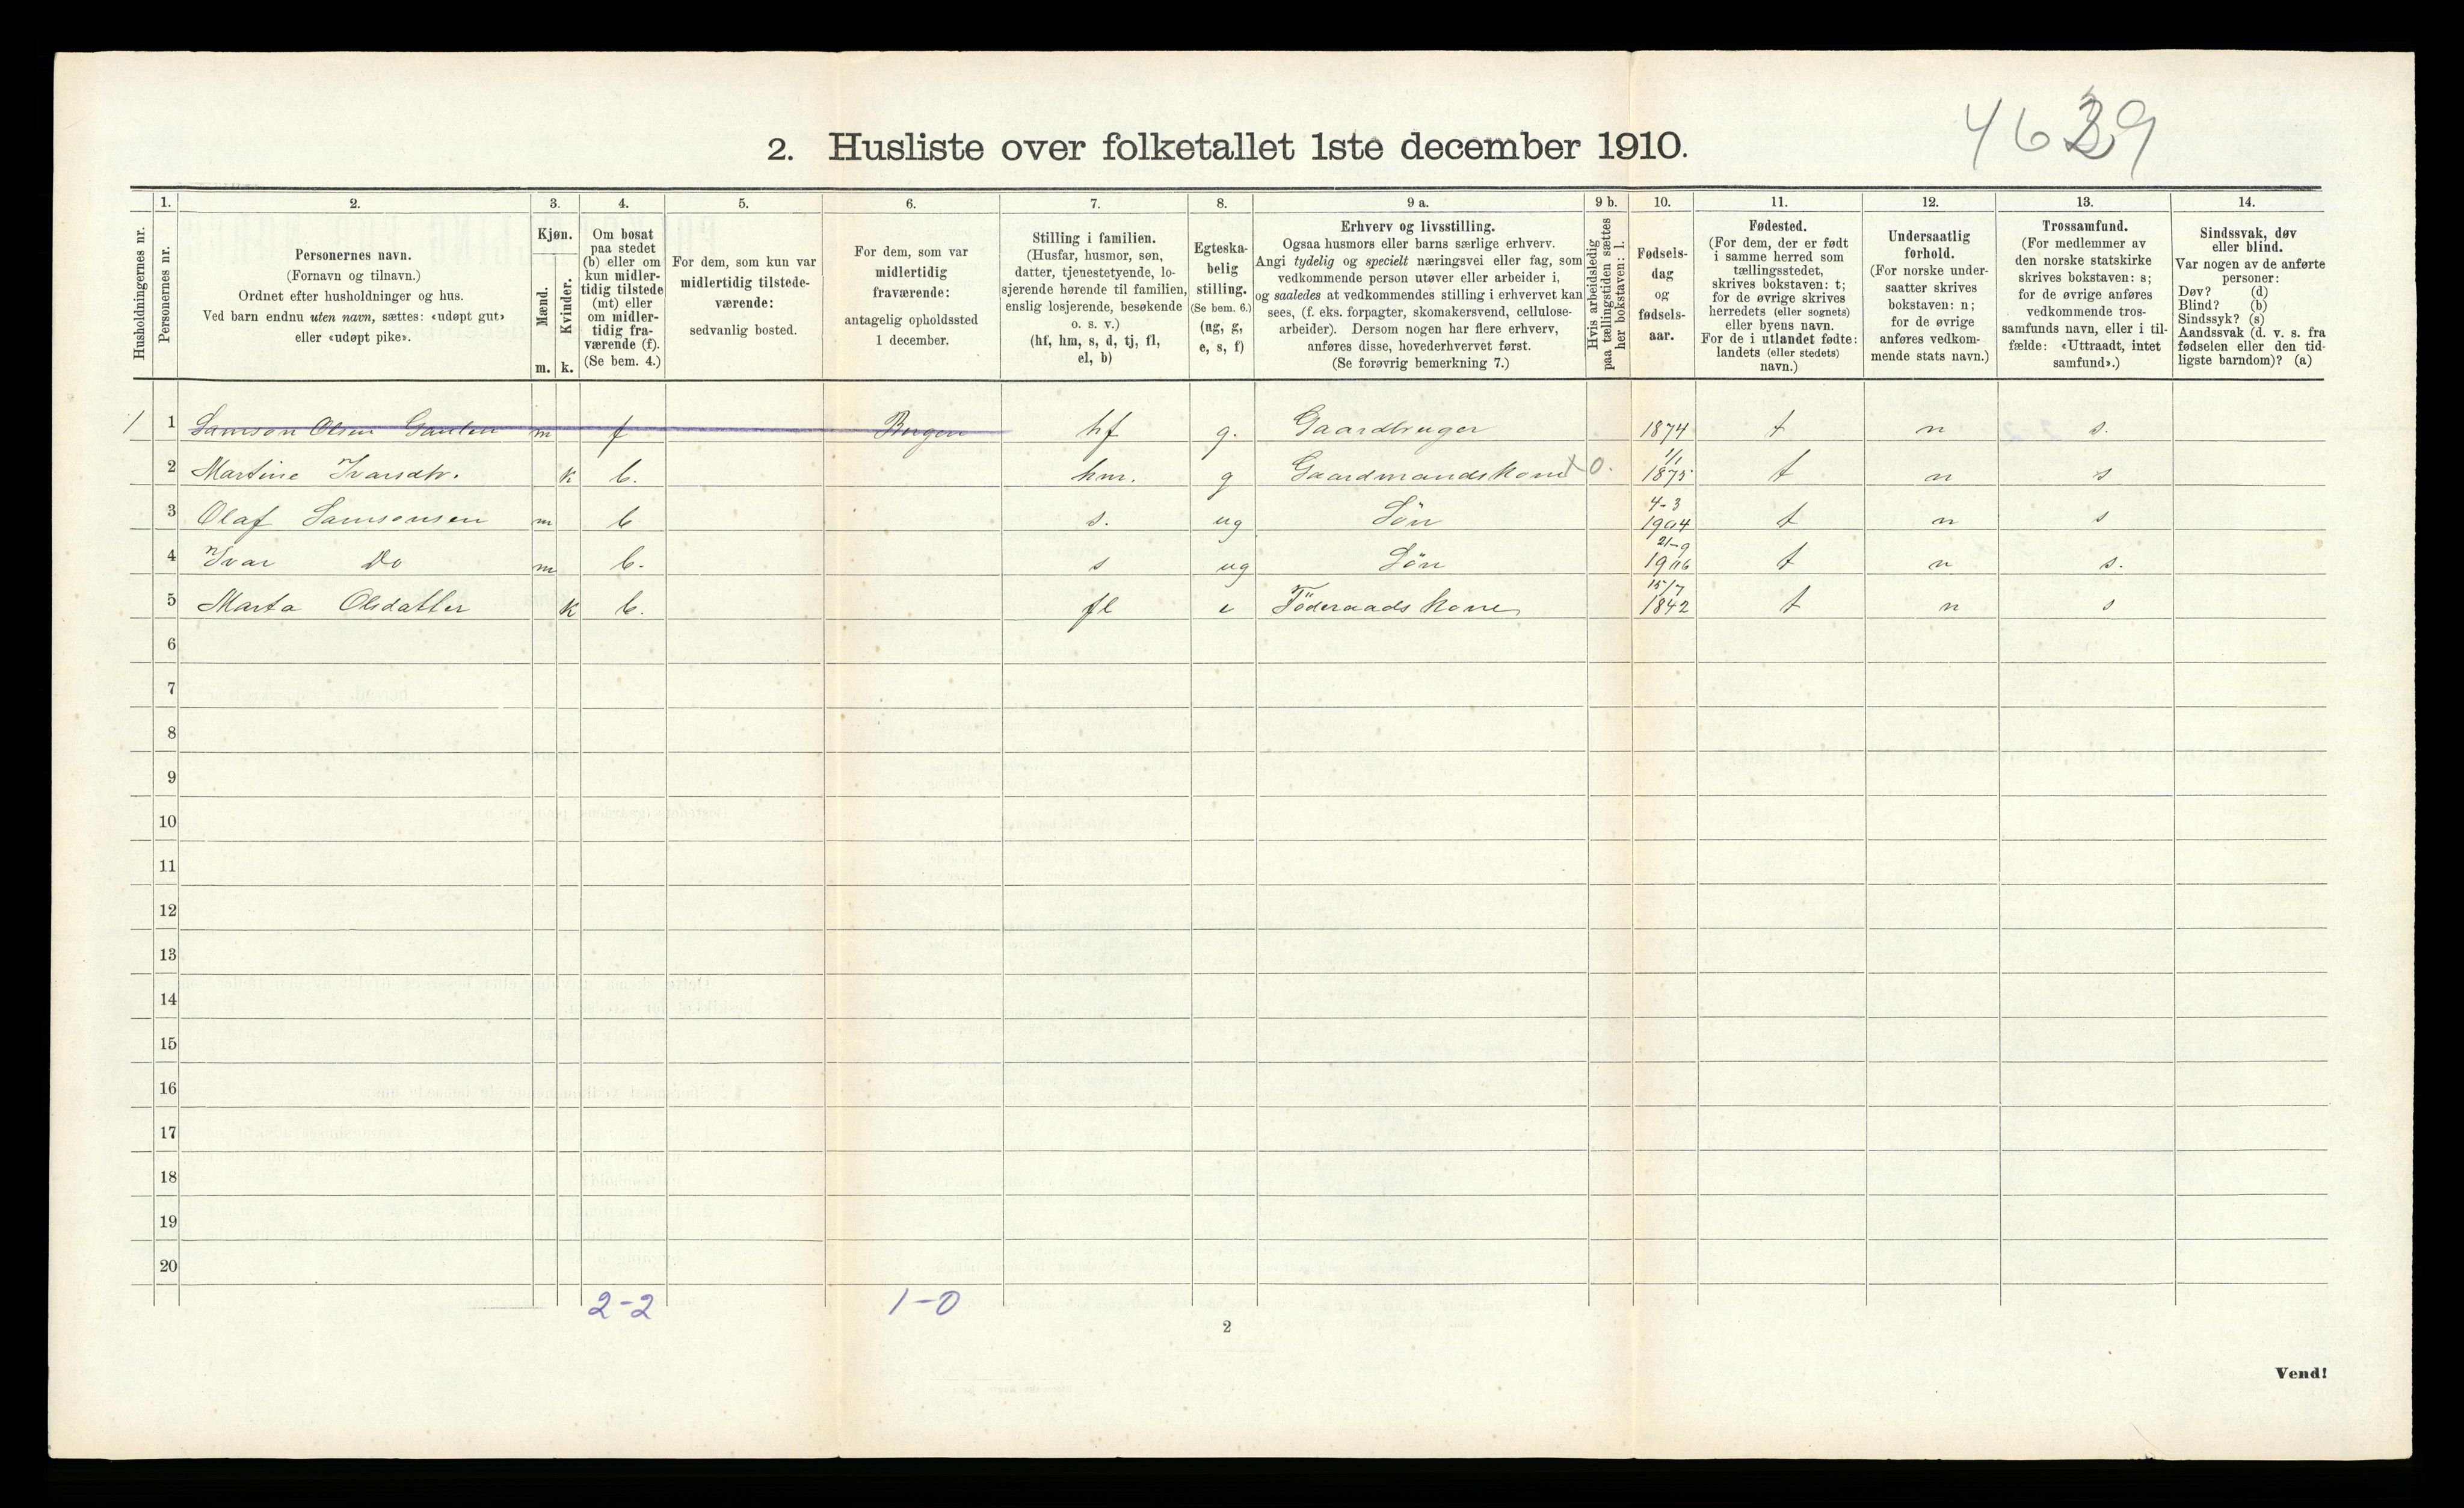 4639
2. Husliste over folketallet 1ste december 1910.
Husholdningernes nr.
1.
Personernes nr.
2.
Personernes navn.
(Fornavn og tilnavn.)
Ordnet efter husholdninger og hus.
Ved barn endnu uten navn, sættes: «udøpt gut»
eller «udøpt pike».
3.
Kjøn.
Mænd.
Kvinder.
m. k.
4.
Om bosat
paa stedet
(b) eller om
kun midler-
tidig tilstede
(mt) eller
om midler-
tidig fra-
værende (f).
(Se bem. 4.)
5.
For dem, som kun var
midlertidig tilstede-
værende:
sedvanlig bosted.
6.
For dem, som var
midlertidig
fraværende:
antagelig opholdssted
1 december.
7.
Stilling i familien.
(Husfar, husmor, søn,
datter, tjenestetyende, lo-
sjerende hørende til familien,
enslig losjerende, besøkende
o. s. v.)
(hf, hm, s, d, tj, fl,
el, b)
8.
Egteska-
belig
stilling.
(Se bem. 6.)
(ug, g,
e, s, f)
9 a.
Erhverv og livsstilling.
Ogsaa husmors eller barns særlige erhverv.
Angi tydelig og specielt næringsvei eller fag, som
vedkommende person utøver eller arbeider i,
og saaledes at vedkommendes stilling i erhvervet kan
sees, (f. eks. forpagter, skomakersvend, cellulose-
arbeider). Dersom nogen har flere erhverv,
anføres disse, hovederhvervet først.
(Se forøvrig bemerkning 7.)
9 b.
Hvis arbeidsledig
paa tællingstiden sættes
her bokstaven: l.
10.
Fødsels-
dag
og
fødsels-
aar.
11.
Fødested.
(For dem, der er født
i samme herred som
tællingsstedet,
skrives bokstaven: t;
for de øvrige skrives
herredets (eller sognets)
eller byens navn.
For de i utlandet fødte:
landets (eller stedets)
navn.)
12.
Undersaatlig
forhold.
(For norske under-
saatter skrives
bokstaven: n;
for de øvrige
anføres vedkom-
mende stats navn.)
13.
Trossamfund.
(For medlemmer av
den norske statskirke
skrives bokstaven: s;
for de øvrige anføres
vedkommende tros-
samfunds navn, eller i til-
fælde: «Uttraadt, intet
samfund».)
14.
Sindssvak, døv
eller blind.
Var nogen av de anførte
personer:
Døv? (d)
Blind? (b)
Sindssyk? (s)
Aandssvak (d. v. s. fra
fødselen eller den tid-
ligste barndom)? (a)
1 1 Samson Olsen m f Bergen hf g. Gaardbruger 1874 t n s.
2 Martine Ivarsdtr. k b. hm. g Gaardmandskone x 0. 1/1 1875 t n s
3 Olaf Samsonsen m b s. ug Sön 4-3 1904 t n s
4 Ivar Do m b. s ug Sön 21-9 1906 t n s.
5 Marta Olsdatter k b. fl e Föderaadskone 15/7 1842 t n s
6
7
8
9
10
11
12
13
14
15
16
17
18
19
20
2-2 1-0
2
Vend!